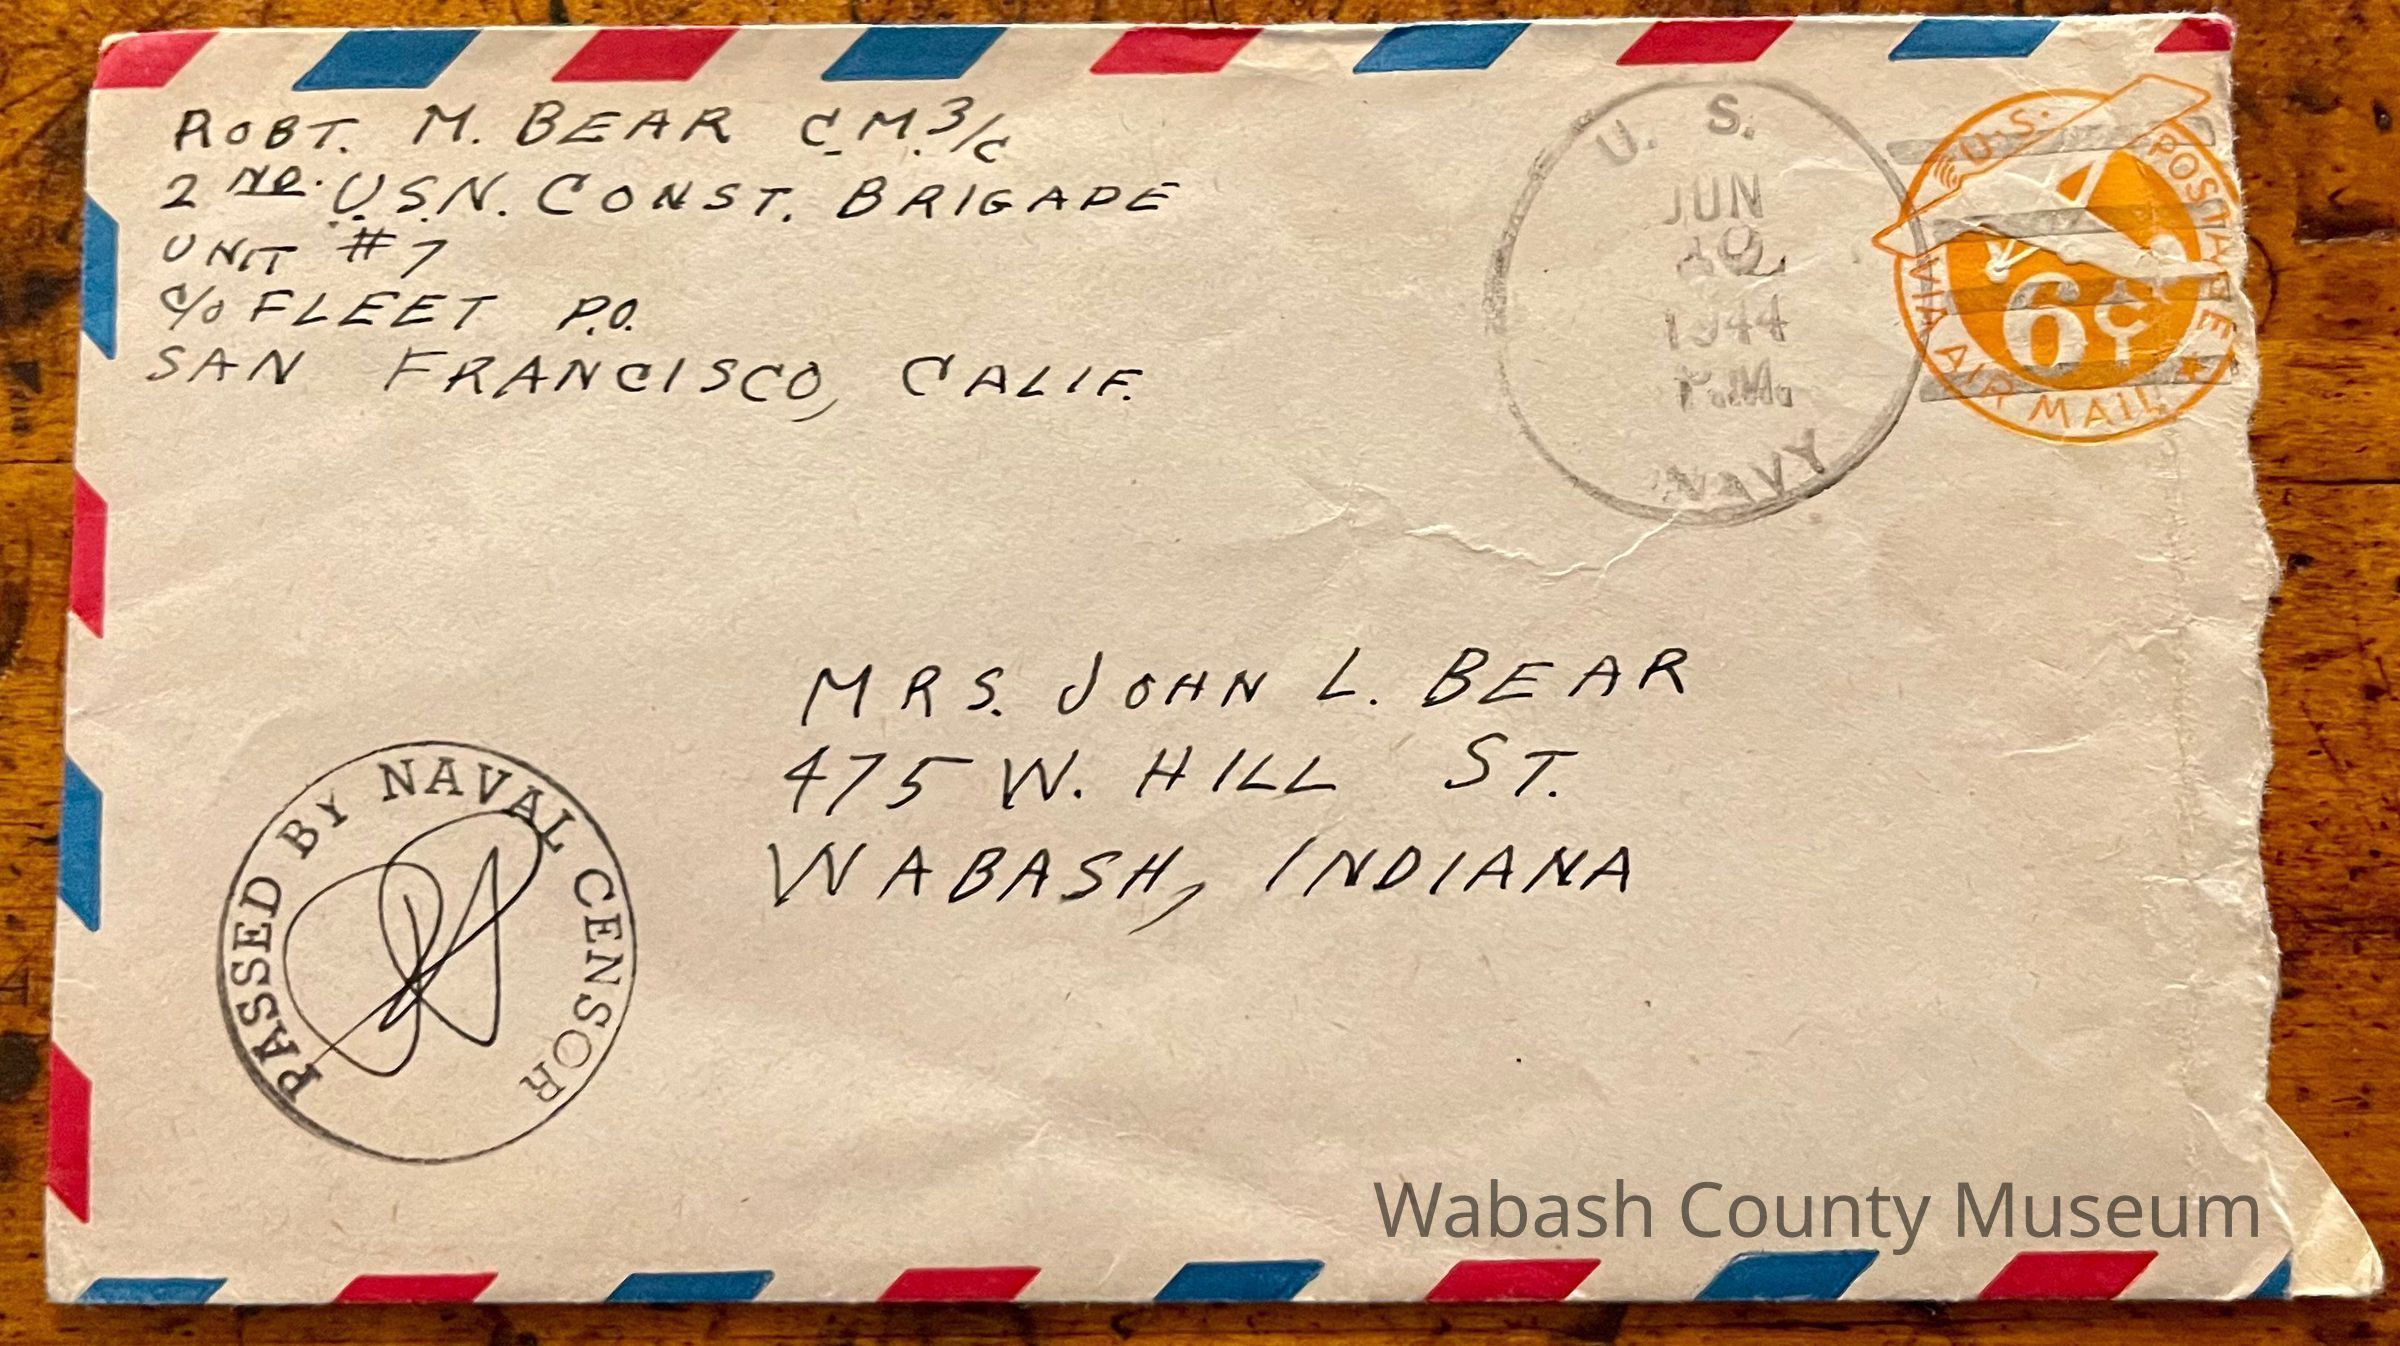 ROBT. M. BEAR C.M. 3/c
2ND. U.S.N. CONST. BRIGADE
UNIT #7
c/o FLEET P.O.
SAN FRANCISCO, CALIF.
U. S.
JUN
1944
P.M.
NAVY
U.S. POSTAGE
6¢
VIA AIR MAIL
MRS. JOHN L. BEAR
475 W. HILL ST.
WABASH, INDIANA
PASSED BY NAVAL CENSOR
Wabash County Museum